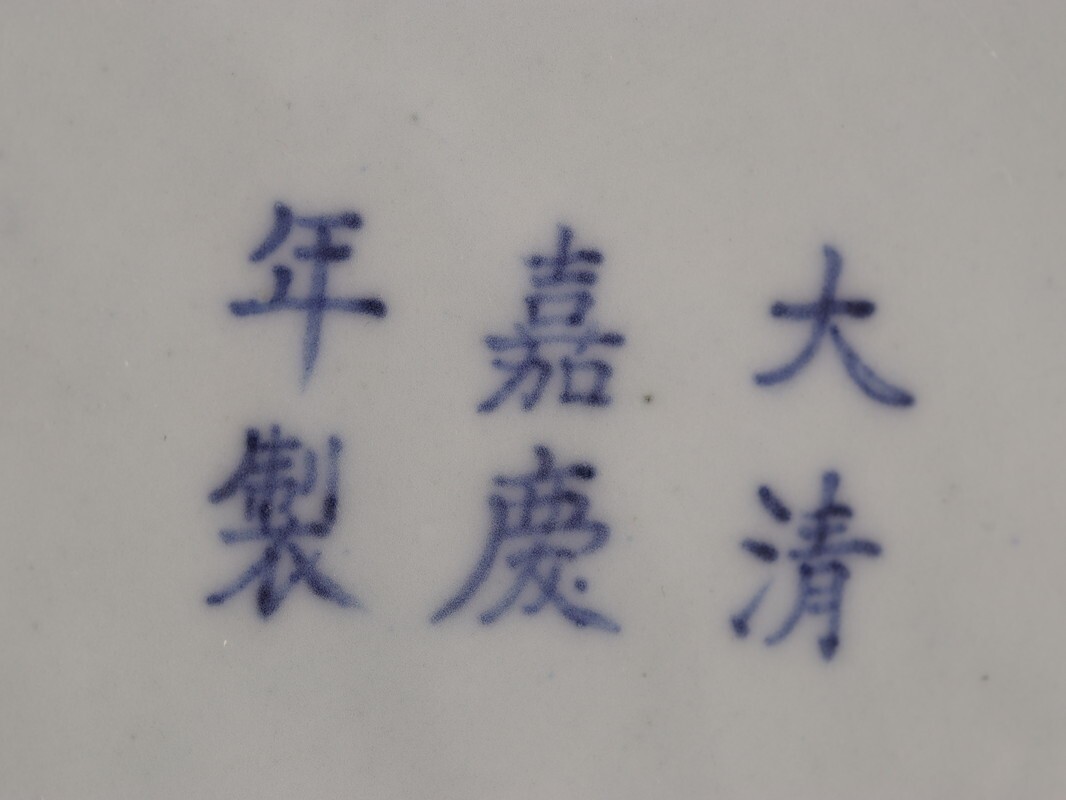 大清
嘉慶
年製